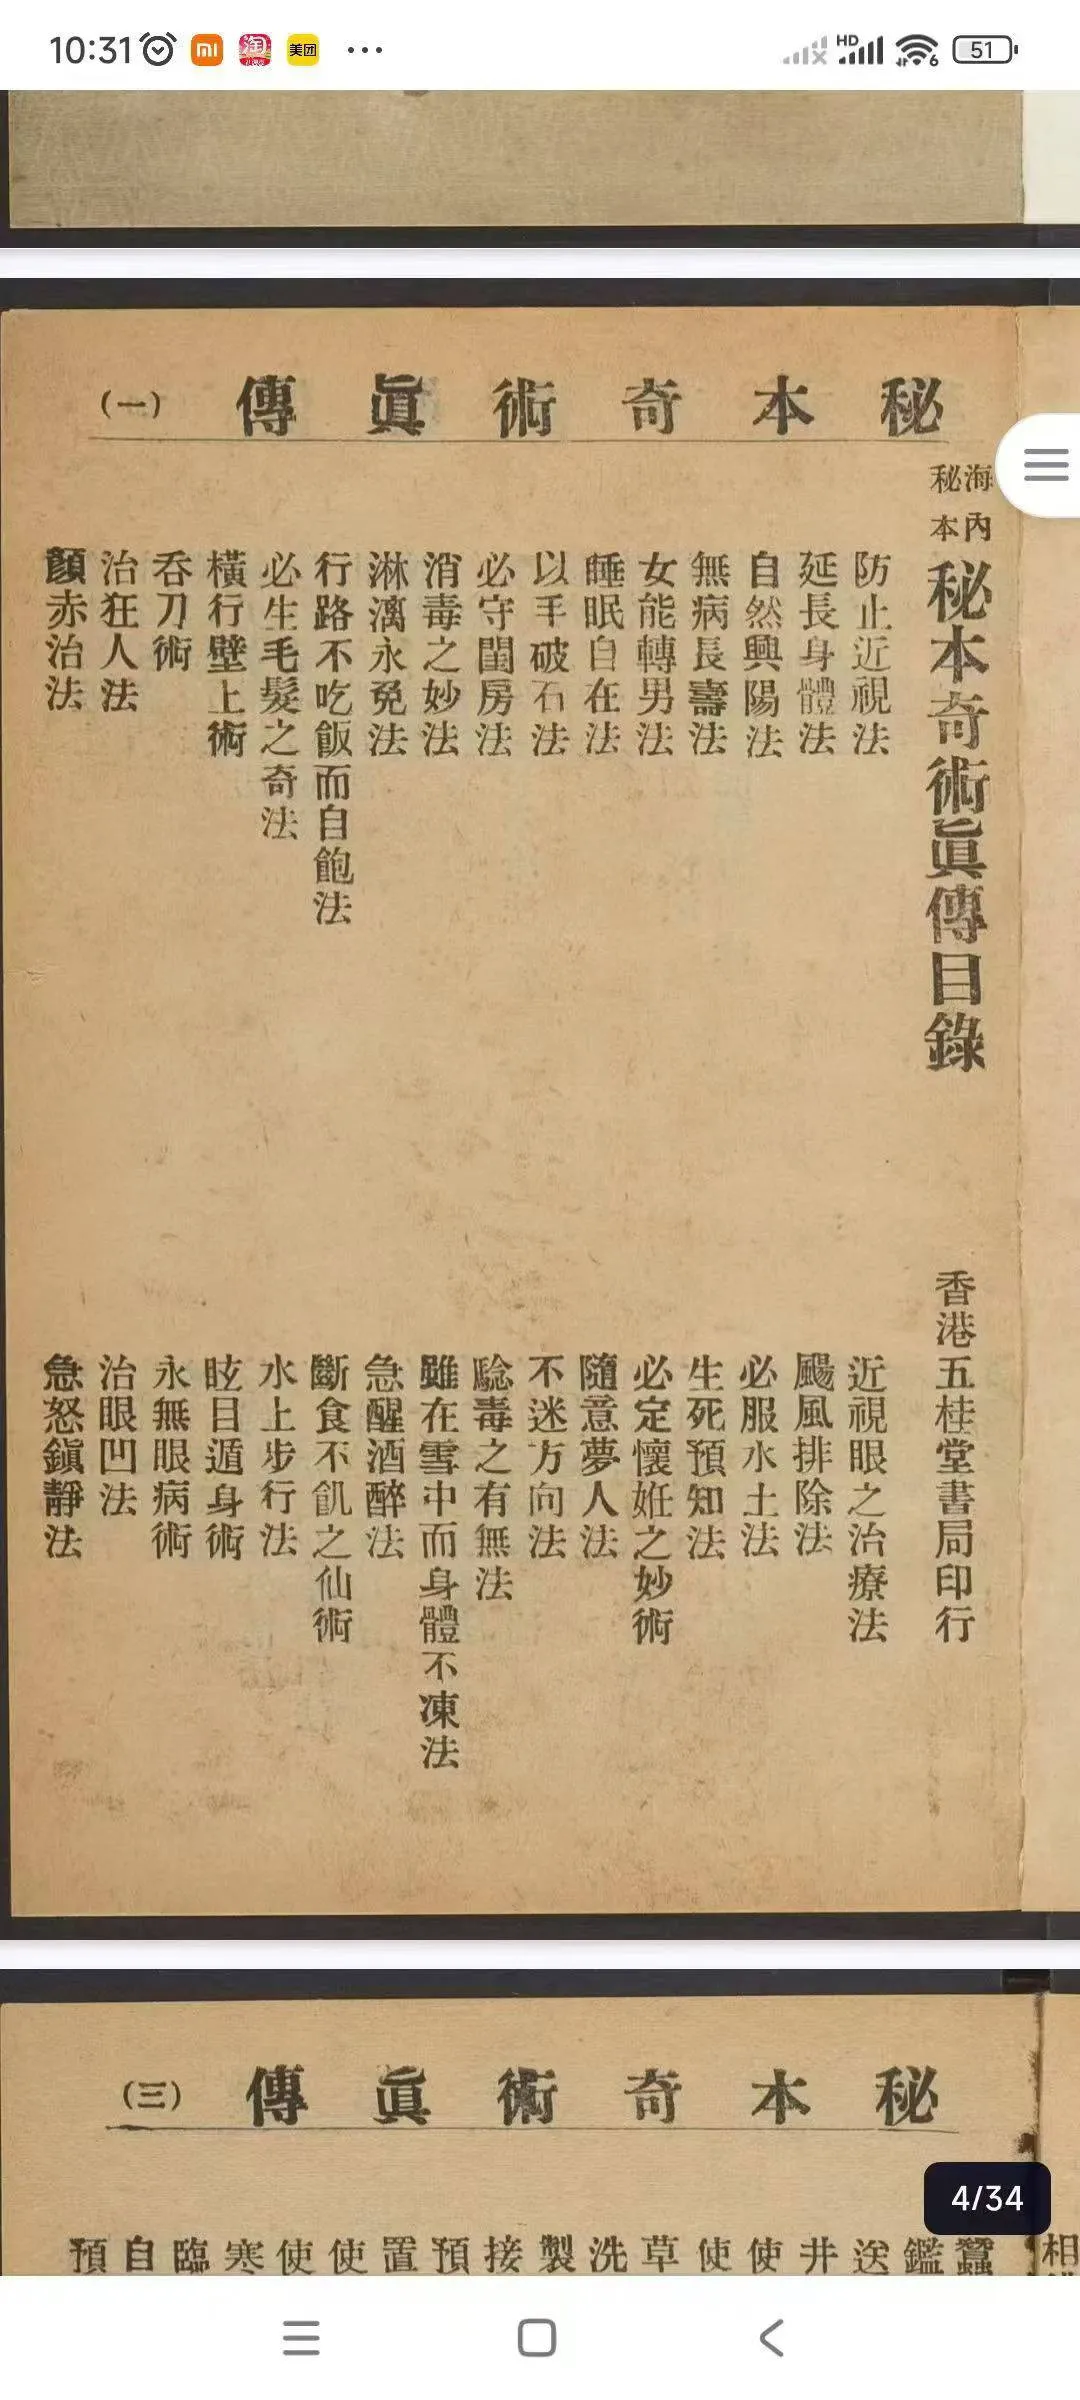 10:31
美团
HD
6
51
秘本奇術眞傳
(一)
海內
秘本
秘本奇術眞傳目錄
香港五桂堂書局印行
防止近視法
延長身體法
自然興陽法
無病長壽法
女能轉男法
睡眠自在法
以手破石法
必守閨房法
消毒之妙法
淋漓永免法
行路不吃飯而自飽法
必生毛髮之奇法
橫行壁上術
吞刀術
治狂人法
顏赤治法
近視眼之治療法
颺風排除法
必服水土法
生死預知法
必定懷姙之妙術
隨意夢人法
不迷方向法
驗毒之有無法
雖在雪中而身體不凍法
急醒酒醉法
斷食不飢之仙術
水上步行法
眩目遁身術
永無眼病術
治眼凹法
急怒鎭靜法
秘本奇術眞傳
(三)
相
蠶
鑑
送
井
使
使
草
洗
製
接
預
置
使
使
寒
臨
自
預
4/34